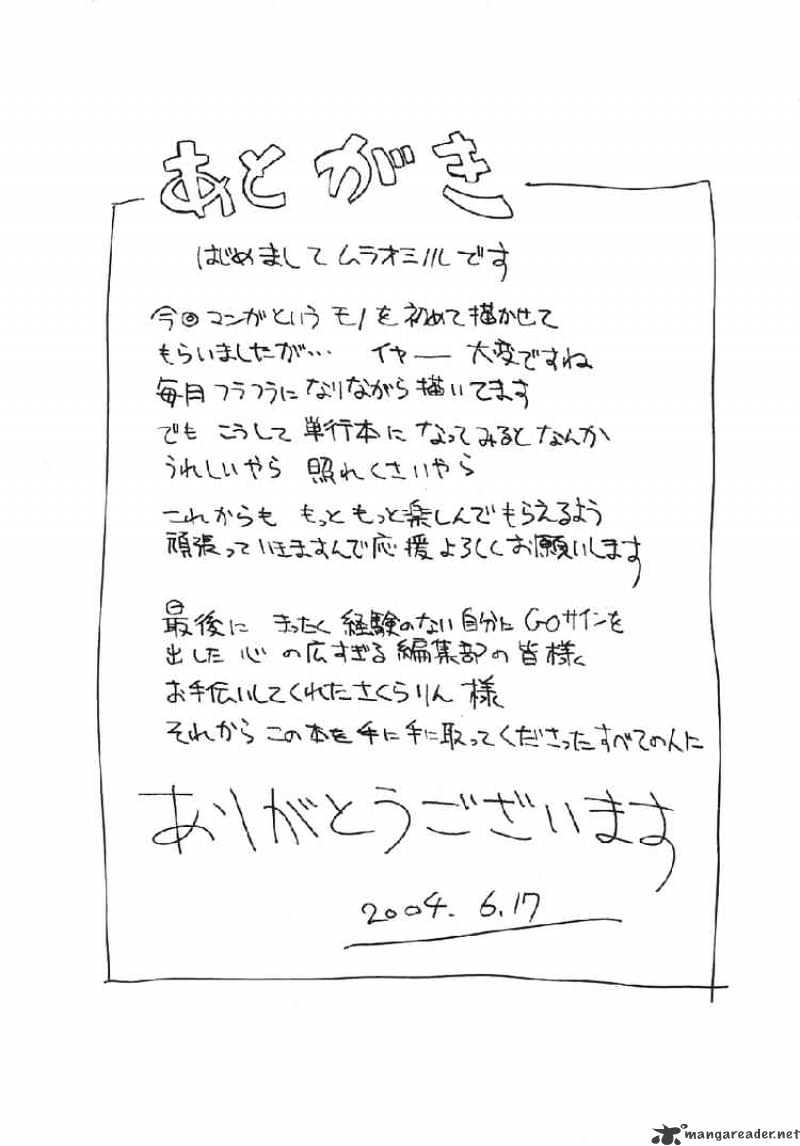 あとがき
はじめまして ムラオミノルです
今回マンガというモノを初めて描かせて
もらいましたが… イヤー 大変ですね
毎月フラフラになりながら描いてます
でも こうして 単行本になってみるとなんか
うれしいやら 照れくさいやら
これからも もっともっと楽しんでもらえるよう
頑張っていきますんで応援よろしくお願いします
最後に まったく経験のない自分にGOサインを
出した心の広すぎる編集部の皆様
お手伝いしてくれたさくらりん様
それからこの本を手に手に取ってくださったすべての人に
ありがとうございます
2004. 6.17
mangareader.net